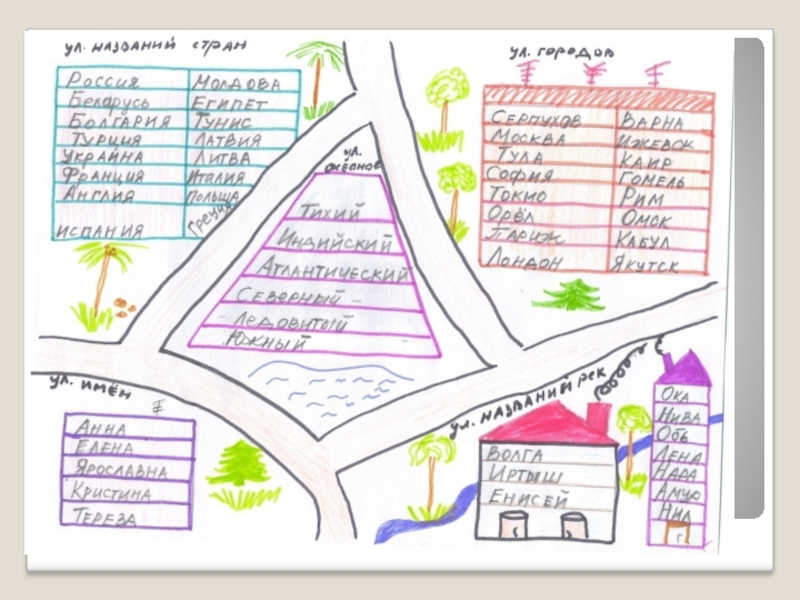 ул. названий стран
Россия Молдова
Беларусь Египет
Болгария Тунис
Турция Латвия
Украина Литва
Франция Италия
Англия Польша
Испания Греция
ул. океанов
Тихий
Индийский
Атлантический
Северный –
– Ледовитый
Южный
ул. городов
Серпухов Варна
Москва Ижевск
Тула Каир
София Гомель
Токио Рим
Орёл Омск
Париж Кабул
Лондон Якутск
ул. имён
Анна
Елена
Ярославна
Кристина
Тереза
ул. названий рек
Волга
Иртыш
Енисей
Ока
Нива
Обь
Лена
Нара
Амур
Нил